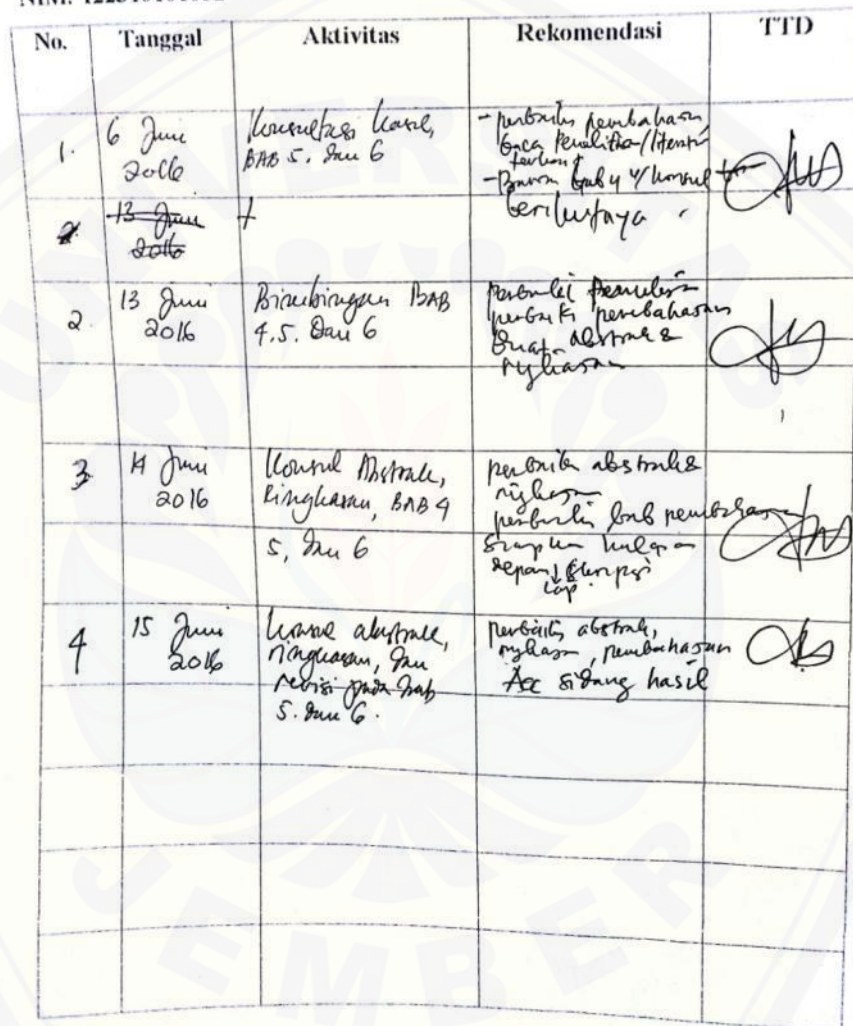 No. Tanggal Aktivitas Rekomendasi TTD
1. 6 Juni 2016
Konsultasi hasil,
BAB 5. dan 6
- perbaiki pembahasan,
baca Penelitian/literatur
terkait
- Bawa bab 4 u/ konsul
berikutnya
2. 13 Juni 2016
2. 13 Juni 2016
Bimbingan BAB
4.5. dan 6
perbaiki penulisan
perbaiki pembahasan
buat abstrak &
ringkasan
3. 14 Juni 2016
Konsul Abstrak,
Ringkasan, BAB 4
5, dan 6
perbaiki abstrak &
ringkasan
perbaiki bab pembahasan
siapkan
skripsi
4 15 Juni 2016
konsul abstrak,
ringkasan, dan
revisi pada bab
5. dan 6.
perbaiki abstrak,
ringkasan, pembahasan
Acc sidang hasil
UNIVERSITAS
JEMBER